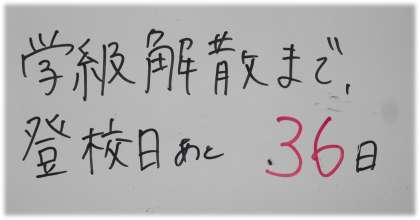 学級解散まで、
登校日あと 36日